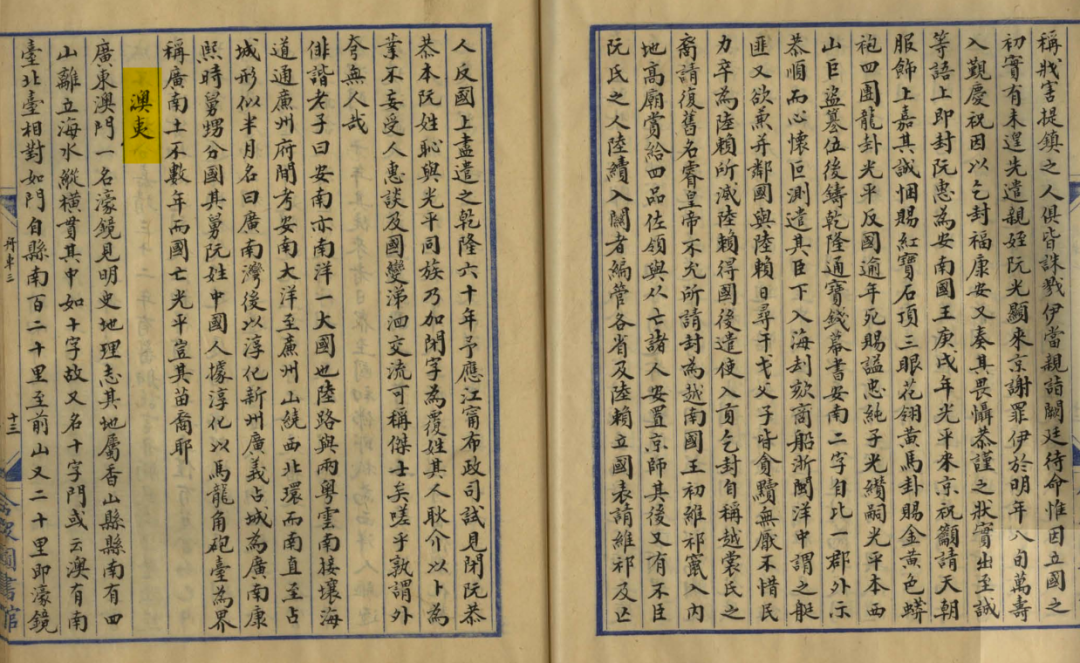 稱戕害提鎮之人俱皆誅戮伊當親詣闕廷待命惟因立國之
初實有未遑先遣親姪阮光顯來京謝罪伊於明年八旬萬壽
入覲慶祝因以乞封福康安又奏其畏懾恭謹之狀實出至誠
等語上即封阮惠為安南國王庚戌年光平來京祝籲請天朝
服飾上嘉其誠悃賜紅寶石頂三眼花翎黃馬卦賜金黃色蟒
袍四團龍卦光平反國逾年死賜謚忠純子光纉嗣光平本西
山巨盜簒位後鑄乾隆通寶錢幕書安南二字自比一郡外示
恭順而心懷叵測遣其臣下入海刦欬商船浙閩洋中謂之艇
匪又欲兼并鄰國與陸賴日尋干戈父子皆貪黷無厭不惜民
力卒為陸賴所滅陸賴得國後遣使入貢乞封自稱越裳氏之
裔請復舊名睿皇帝不允所請封為越南國王初維祁竄入內
地高廟賞給四品佐領與從亡諸人安置京師其後又有不臣
阮氏之人陸續入關者編管各省及陸賴立國表請維祁及亡
人反國上盡遣之乾隆六十年予應江甯布政司試見閉阮恭
恭本阮姓恥與光平同族乃加閉字為覆姓其人耿介以卜為
業不妄受人惠談及國變涕泗交流可稱傑士矣嗟乎孰謂外
夸無人哉
俳諧老子曰安南亦南洋一大國也陸路與兩粵雲南接壤海
道通廉州府閒考安南大洋至廉州山繞西北環而南直至占
城形似半月名曰廣南灣後以淳化新州廣義占城為廣南康
熙時舅甥分國其舅阮姓中國人據淳化以馬龍角砲臺為界
稱廣南土不數年而國亡光平豈其苗裔耶
澳夷
廣東澳門一名濠鏡見明史地理志其地屬香山縣縣南有四
山離立海水縱橫貫其中如十字故又名十字門或云澳有南
臺北臺相對如門自縣南百二十里至前山又二十里即濠鏡
十三